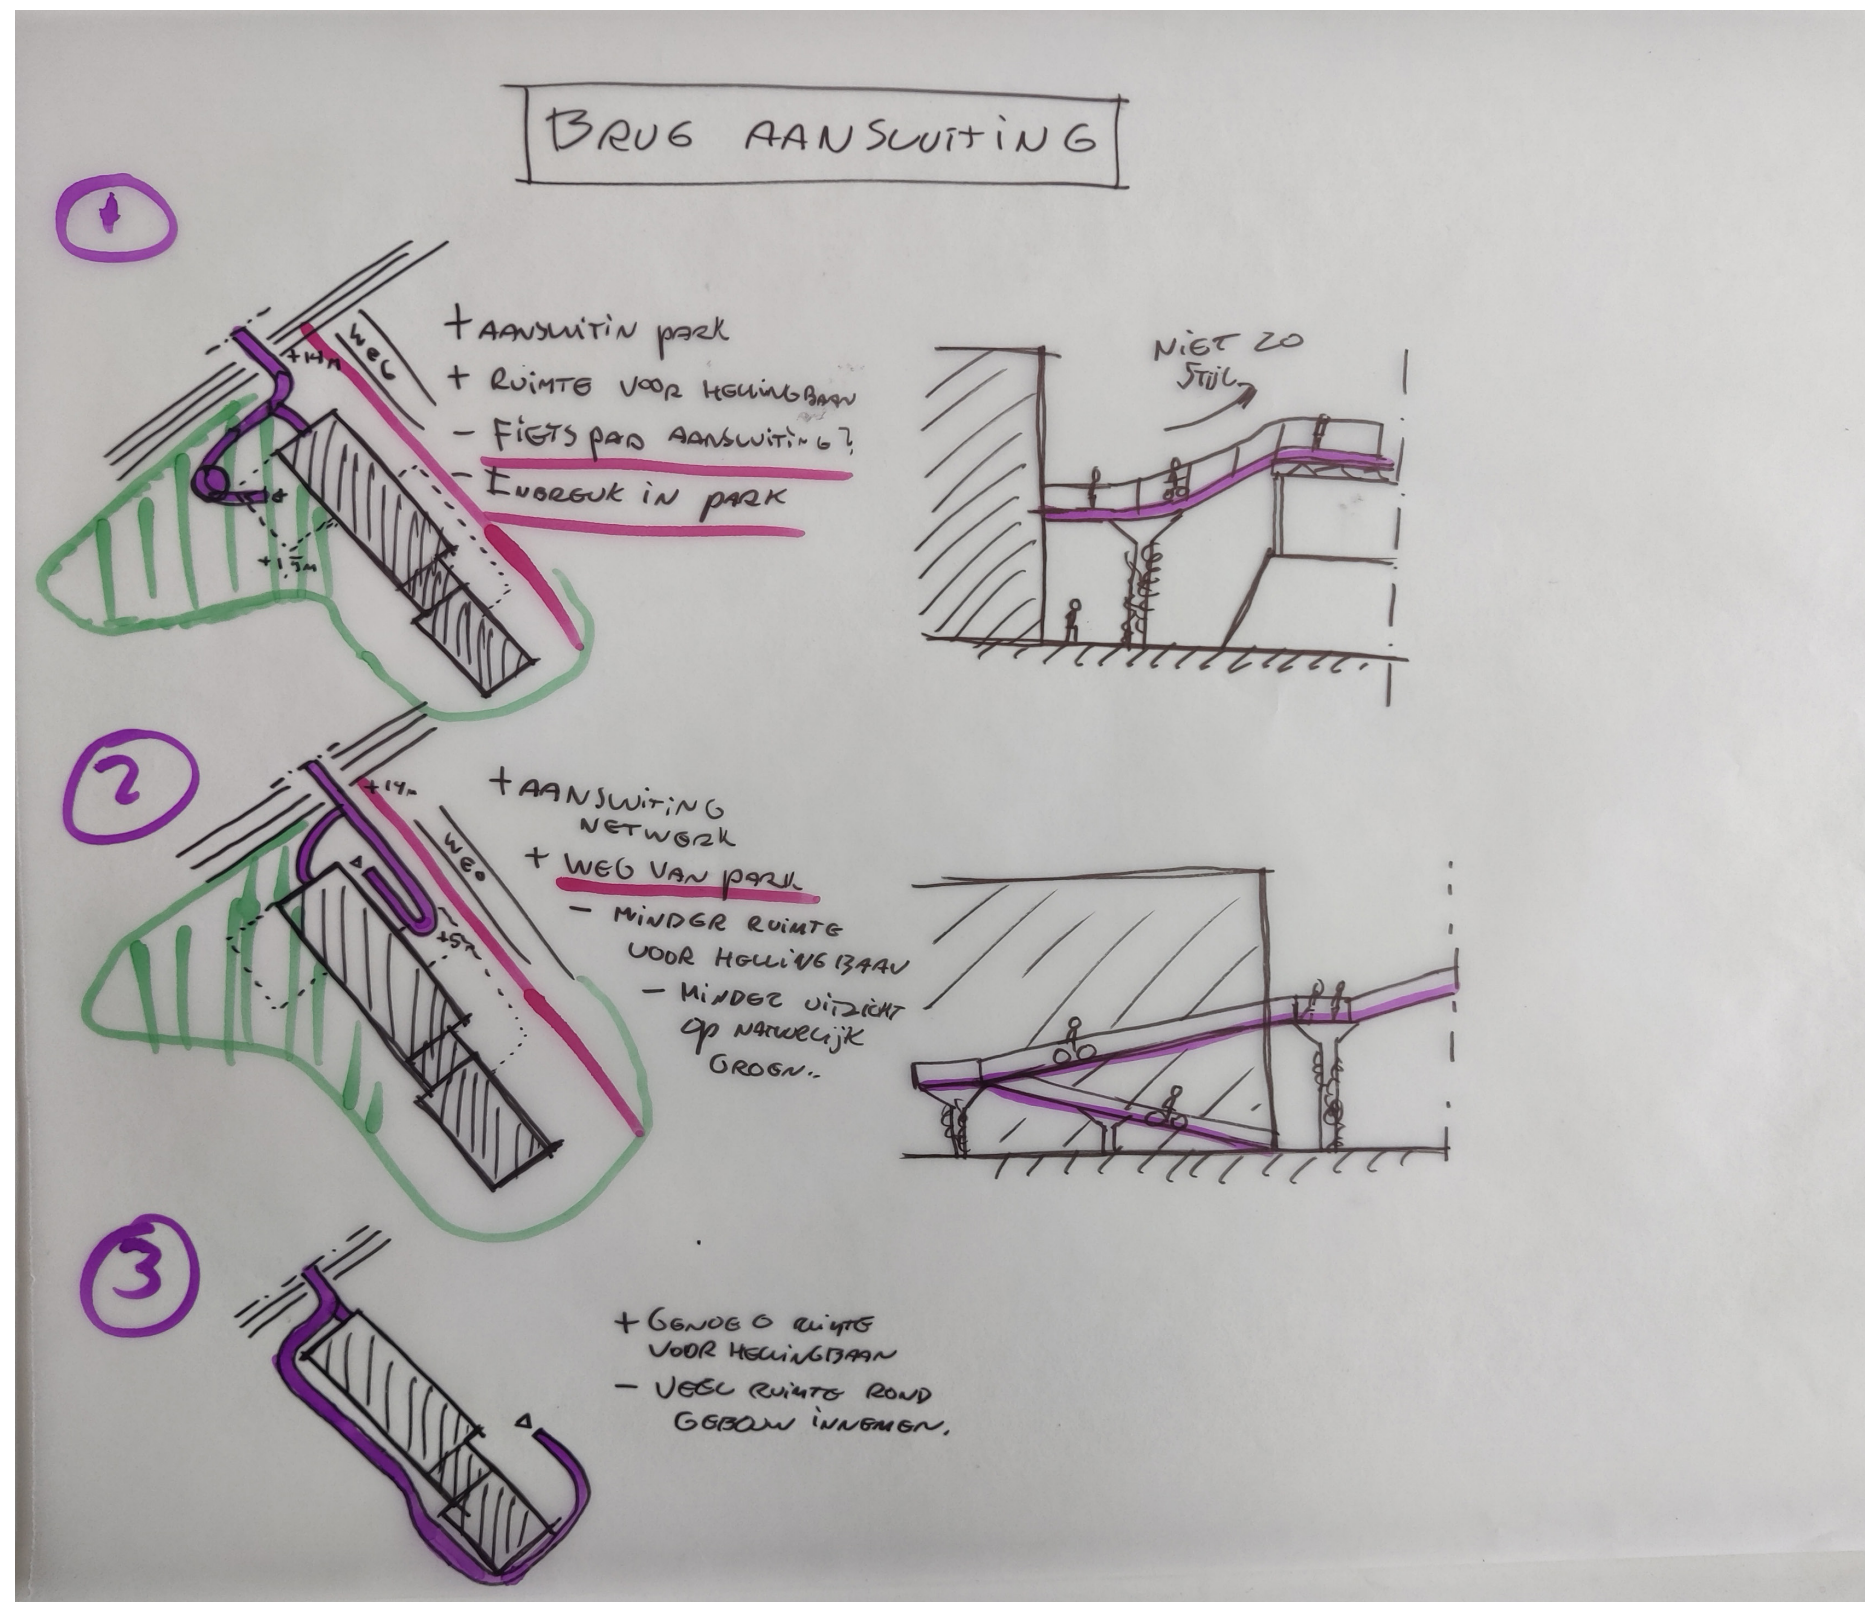 BRUG AANSLUITING
1
WEG
+14m
+ AANSLUITIN PARK
+ RUIMTE VOOR HELLINGBAAN
- FIETSPAD AANSLUITING?
- INBREUK IN PARK
NIET ZO
STIJL
2
+14m
WEG
+5m
+ AANSLUITING
NETWERK
+ WEG VAN PARK
- MINDER RUIMTE
VOOR HELLINGBAAN
- MINDER UITZICHT
OP NATUURLIJK
GROEN..
3
+ GENOEG RUIMTE
VOOR HELLINGBAAN
- VEEL RUIMTE ROND
GEBOUW INNEMEN.